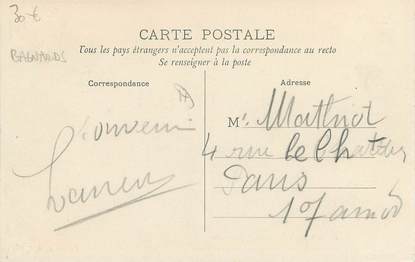 30 €
BAGNARDS
CARTE POSTALE
Tous les pays étrangers n'acceptent pas la correspondance au recto
Se renseigner à la poste
Correspondance
Adresse
Souvenir
Mr. Mathiot
4 rue le
Paris